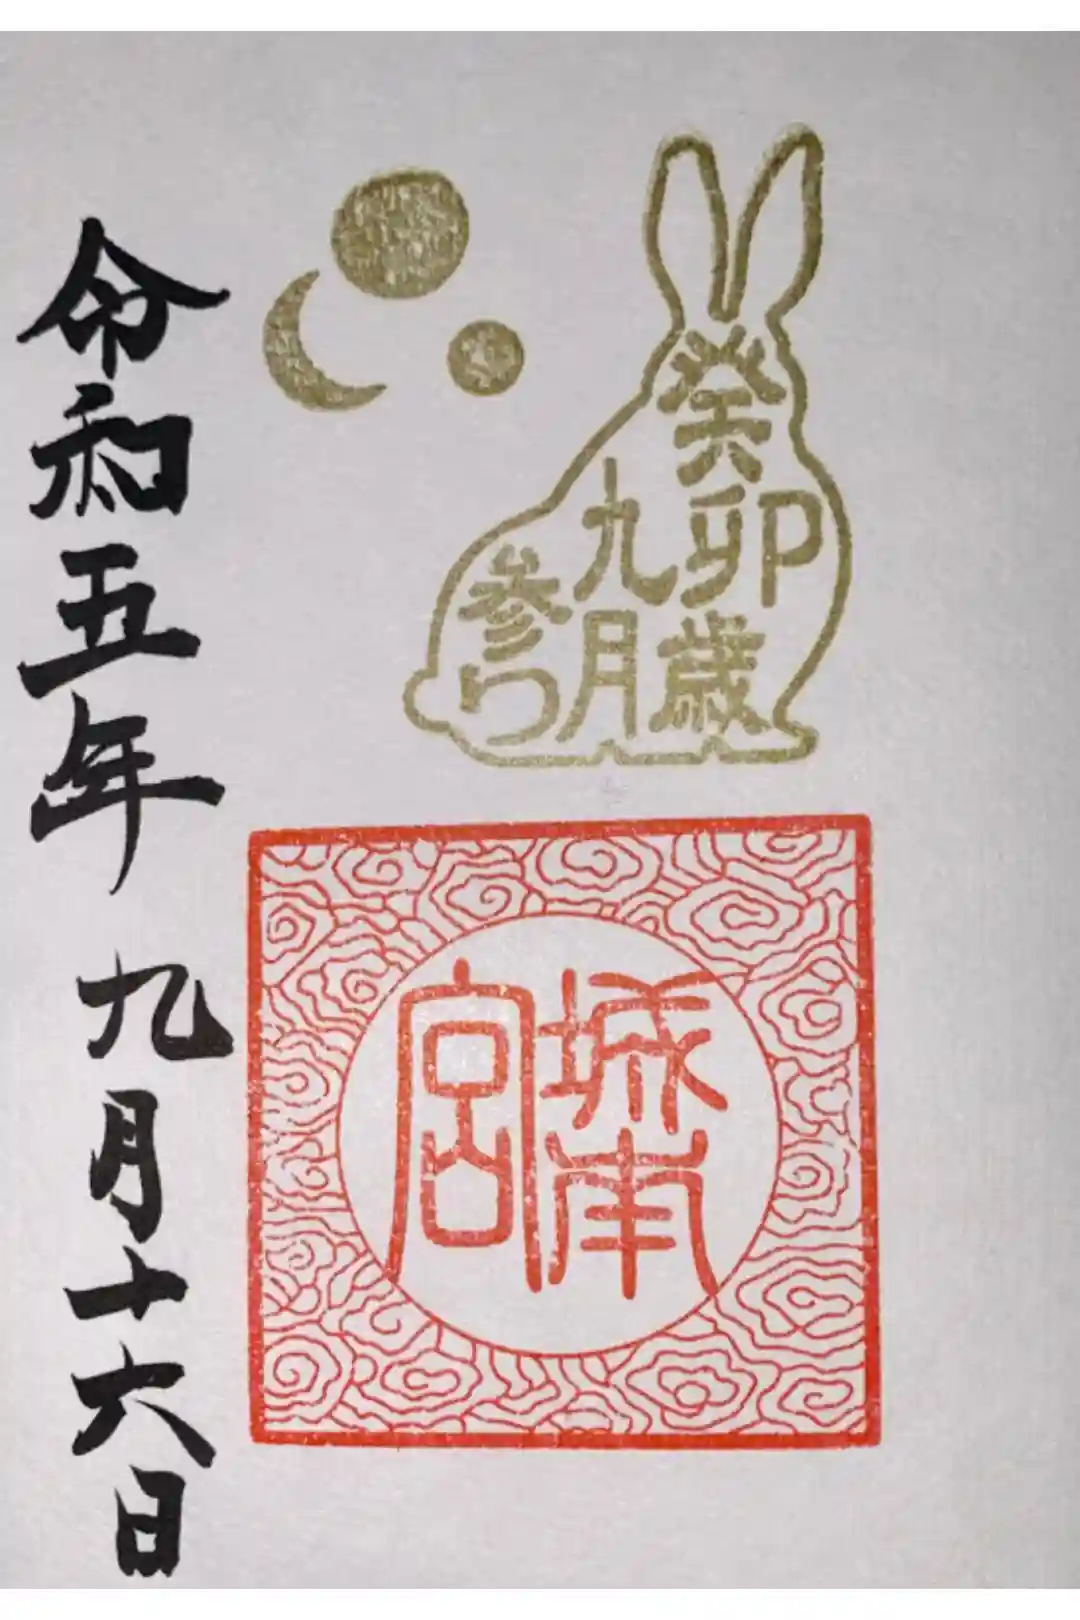 癸卯歳
九月
参り
城南
宮
令和五年九月十六日